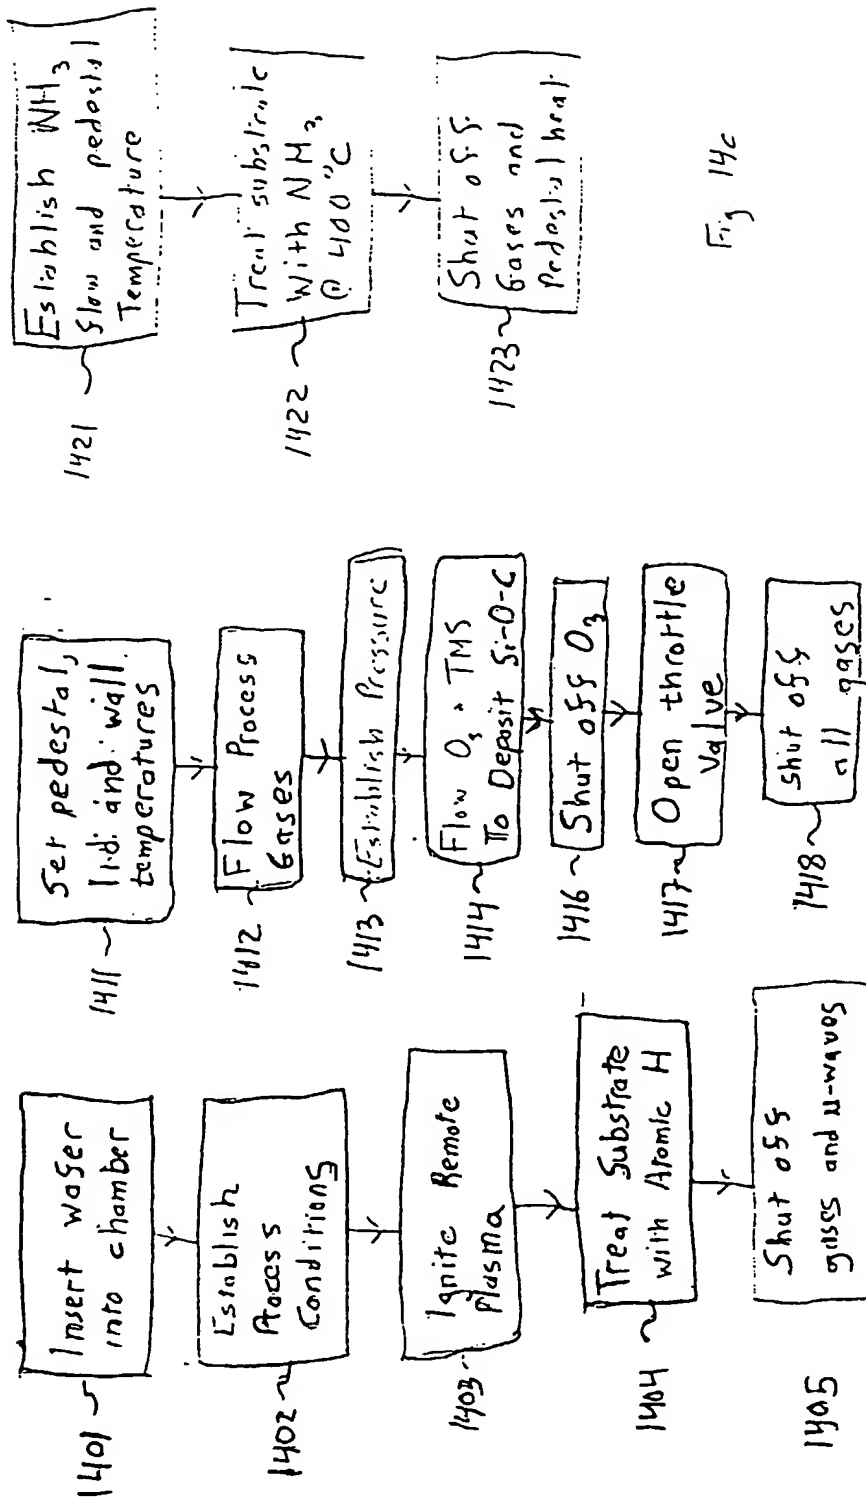 1401
Insert wafer
into chamber
1402
Establish
Process
Conditions
1403
Ignite Remote
Plasma
1404
Treat Substrate
with Atomic H
1405
Shut off
gases and μ-waves
1411
Set pedestal,
lid and wall
temperatures
1412
Flow Process
Gases
1413
Establish Pressure
1414
Flow O3 + TMS
To Deposit Si-O-C
1416
Shut off O3
1417
Open throttle
Valve
1418
Shut off
all gases
1421
Establish NH3
flow and pedestal
Temperature
1422
Treat substrate
With NH3
@ 400°C
1423
Shut off
Gases and
Pedestal heat
Fig 14c